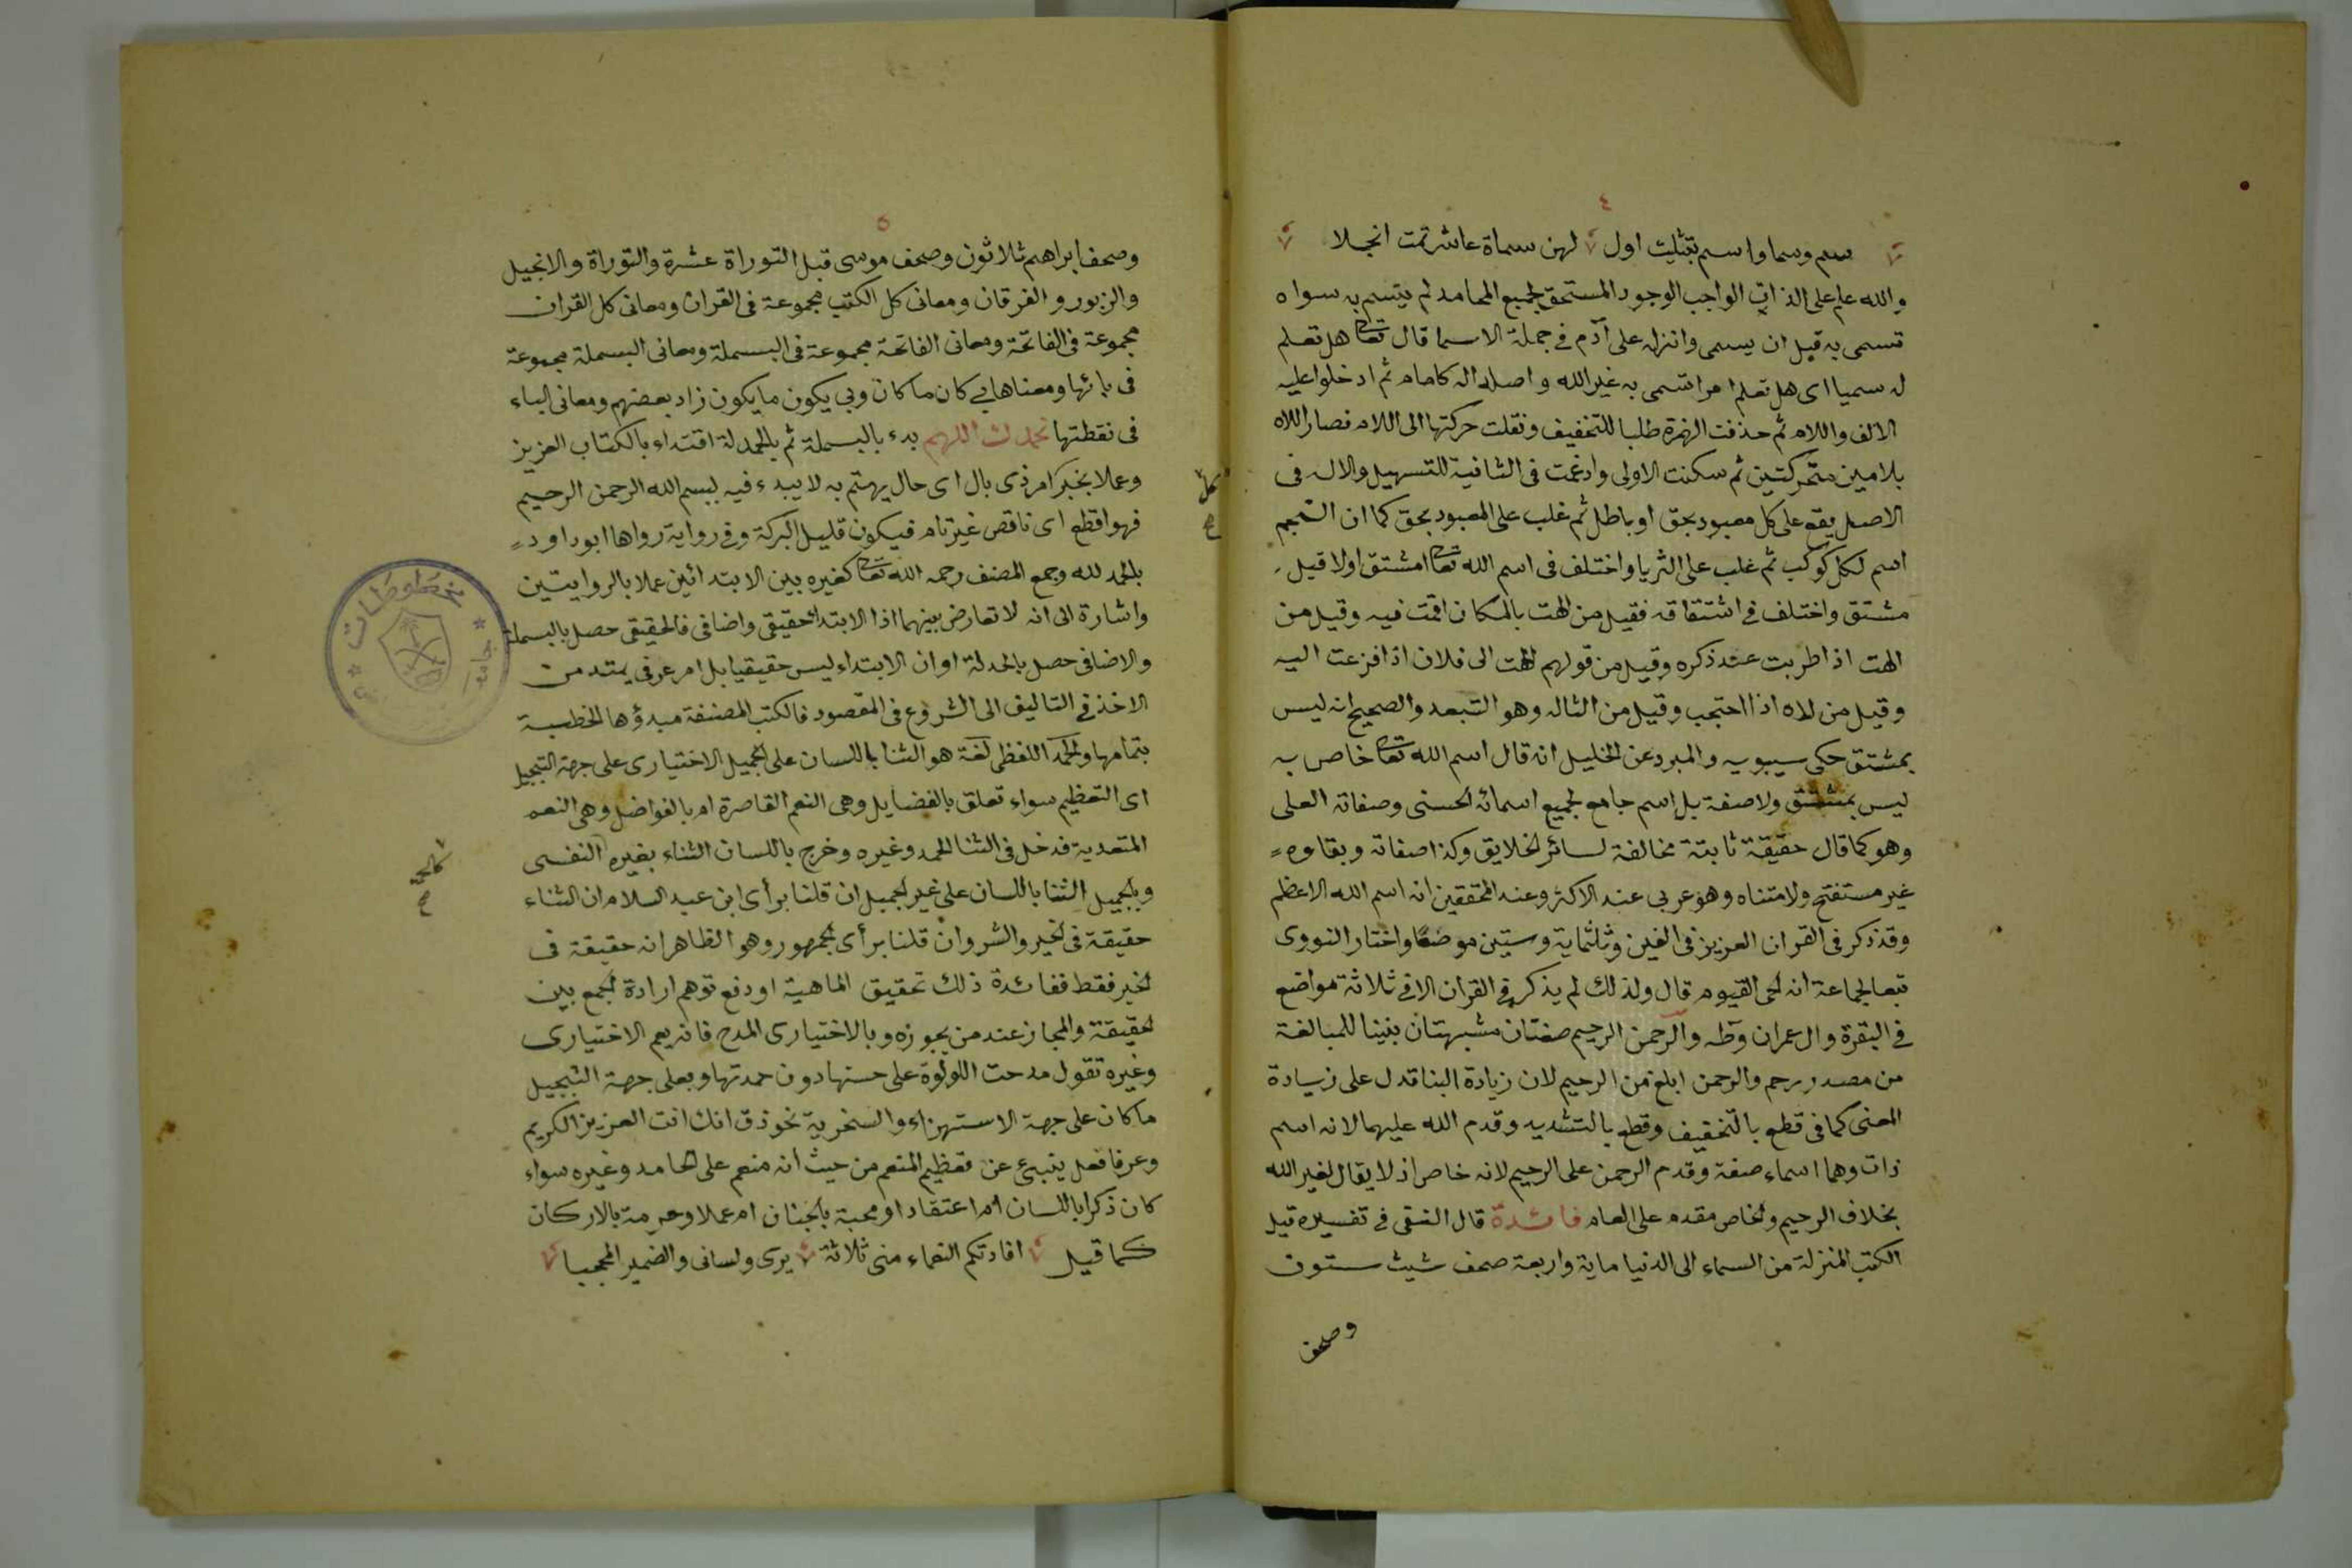 ٤
سم وسما واسم بتثليث اول لهن سماة عاشر تمت انجلا
والله علم على الذات الواجب الوجود المستحق لجميع المحامد لم يتسم به سواه
تسمى به قبل ان يسمى وانزله على آدم في جملة الاسما قال تعا هل تعلم
له سميا اى هل تعلم امرا تسمى به غير الله واصله اله كامام ثم ادخلوا عليه
الالف واللام ثم حذفت الهمزة طلبا للتخفيف ونقلت حركتها الى اللام فصار اللاه
بلامين متحركتين ثم سكنت الاولى وادغمت فى الثانية للتسهيل والاله فى
الاصل يقع على كل معبود بحق او باطل ثم غلب على المعبود بحق كما ان النجم
اسم لكل كوكب ثم غلب على الثريا واختلف فى اسم الله تعا امشتق اولا قيل
مشتق واختلف في اشتقاقه فقيل من الهت بالمكان اقمت فيه وقيل من
الهت اذا طربت عند ذكره وقيل من قولهم الهت الى فلان اذا فزعت اليه
وقيل من لاه اذا احتجب وقيل من التاله وهو التبعد والصحيح انه ليس
بمشتق حكى سيبويه والمبرد عن الخليل انه قال اسم الله تعا خاص به
ليس بمشتق ولا صفة بل اسم جامع لجميع اسمائه الحسنى وصفاته العلى
وهو كما قال حقيقة ثابتة مخالفة لسائر الخلايق وكذا صفاته وبقاوه
غير مستفتح ولا متناه وهو عربى عند الاكثر وعند المحققين انه اسم الله الاعظم
وقد ذكر فى القران العزيز فى الفين وثلثماية وستين موضعا واختار النووى
تبعا لجماعة انه الحى القيوم قال ولذلك لم يذكر في القران الا في ثلاثة مواضع
في البقرة وال عمران وطه والرحمن الرحيم صفتان مشبهتان بنينا للمبالغة
من مصدر رحم والرحمن ابلغ من الرحيم لان زيادة البنا تدل على زيادة
المعنى كما فى قطع بالتخفيف وقطع بالتشديد وقدم الله عليهما لانه اسم
ذات وهما اسماء صفة وقدم الرحمن على الرحيم لانه خاص اذ لا يقال لغير الله
بخلاف الرحيم والخاص مقدم على العام فائدة قال النسفى في تفسيره قيل
الكتب المنزلة من السماء الى الدنيا ماية واربعة صحف شيث ستون
وصحف
٥
وصحف ابراهيم ثلاثون وصحف موسى قبل التوراة عشرة والتوراة والانجيل
والزبور والفرقان ومعانى كل الكتب مجموعة فى القران ومعانى كل القران
مجموعة فى الفاتحة ومعانى الفاتحة مجموعة فى البسملة ومعانى البسملة مجموعة
فى بائها ومعناها بي كان ما كان وبي يكون ما يكون زاد بعضهم ومعانى الباء
فى نقطتها نحمدك اللهم بدء بالبسملة ثم بالحمدلة اقتداء بالكتاب العزيز
وعملا بخبر كل امر ذى بال اى حال يهتم به لا يبدء فيه ببسم الله الرحمن الرحيم
فهو اقطع اى ناقص غير تام فيكون قليل البركة وفي رواية رواها ابو داود
بالحمد لله وجمع المصنف رحمه الله تعا كغيره بين الابتدائين عملا بالروايتين
واشارة الى انه لا تعارض بينهما اذ الابتدا حقيقى واضافى فالحقيقى حصل بالبسملة
والاضافى حصل بالحمدلة او ان الابتداء ليس حقيقيا بل امر عرفي يمتد من
الاخذ في التاليف الى الشروع فى المقصود فالكتب المصنفة مبدؤها الخطبة
بتمامها والحمد اللفظى لغة هو الثنا باللسان على الجميل الاختيارى على جهة التبجيل
اى التعظيم سواء تعلق بالفضايل وهى النعم القاصرة ام بالفواضل وهى النعم
المتعدية فدخل فى الثنا الحمد وغيره وخرج باللسان الثناء بغيره النفسى
كالحمد صح
وبالجميل الثنا باللسان على غير الجميل ان قلنا برأى ابن عبد السلام ان الثناء
حقيقة فى الخير والشر وان قلنا برأى الجمهور وهو الظاهر انه حقيقة فى
الخير فقط ففائدة ذلك تحقيق الماهية او دفع توهم ارادة الجمع بين
الحقيقة والمجاز عند من يجوزه وبالاختيارى المدح فانه يعم الاختيارى
وغيره تقول مدحت اللولوة على حسنها دون حمدتها وبعلى جهة التبجيل
ما كان على جهة الاستهزاء والسخرية نحو ذق انك انت العزيز الكريم
وعرفا فعل ينبئ عن تعظيم المنعم من حيث انه منعم على الحامد وغيره سواء
كان ذكرا باللسان ام اعتقادا ومحبة بالجنان ام عملا وخدمة بالاركان
كما قيل افادتكم النعماء منى ثلاثة يدى ولسانى والضمير المحجبا
مخطوطات
جامعة